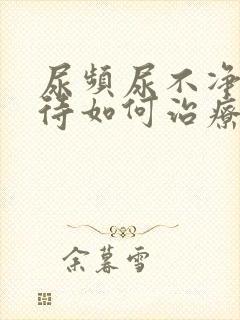 尿頻尿不净
待如何治療
余暮雪